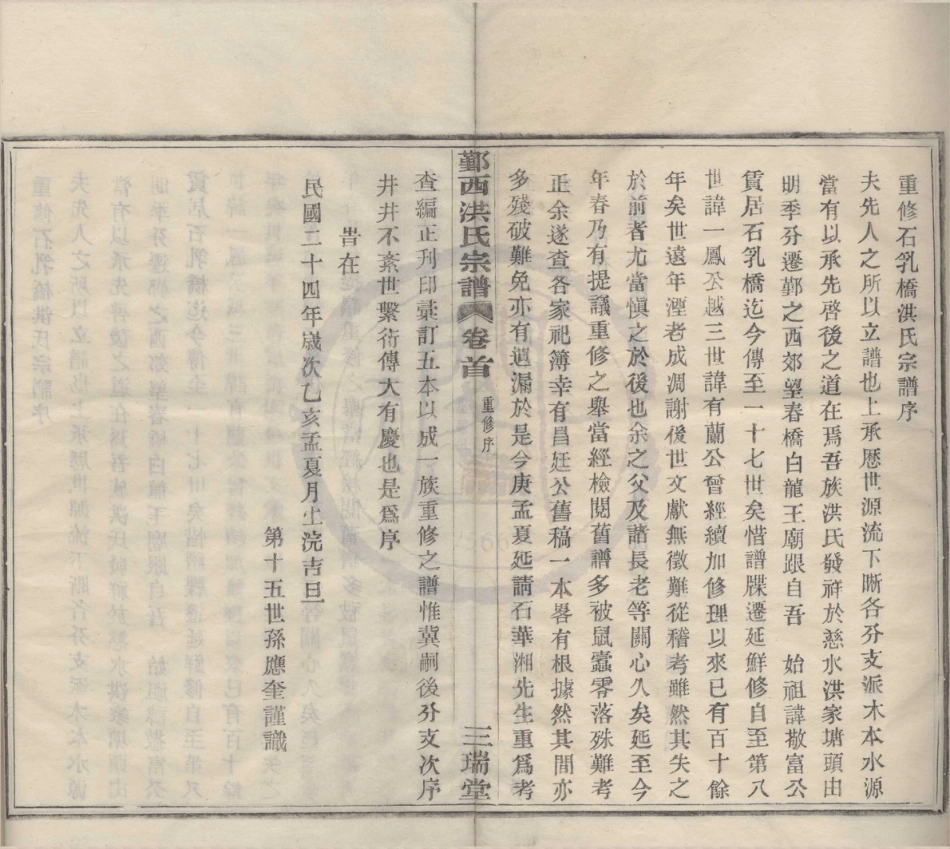 重修石乳橋洪氏宗譜序
夫先人之所以立譜也上承歷世源流下晰各分支派木本水源
當有以承先啓後之道在焉吾族洪氏發祥於慈水洪家塘頭由
明季分遷鄞之西郊望春橋白龍王廟跟自吾 始祖諱敬富公
賃居石乳橋迄今傳至一十七世矣惜譜牒遷延鮮修自至第八
世諱一鳳公越三世諱有蘭公曾經續加修理以來已有百十餘
年矣世遠年湮老成凋謝後世文獻無徵難從稽考雖然其失之
於前者尤當愼之於後也余之父及諸長老等關心久矣延至今
年春乃有提議重修之舉當經檢閱舊譜多被鼠蠹零落殊難考
正余遂查各家祀簿幸有昌廷公舊稿一本畧有根據然其間亦
多殘破難免亦有遺漏於是今庚孟夏延請石華湘先生重爲考
鄞西洪氏宗譜 卷首 重修序 三瑞堂
查編正刊印彙訂五本以成一族重修之譜惟冀嗣後分支次序
井井不紊世繫衍傳大有慶也是爲序
旹在
民國二十四年歲次乙亥孟夏月上浣吉旦
第十五世孫應奎謹識